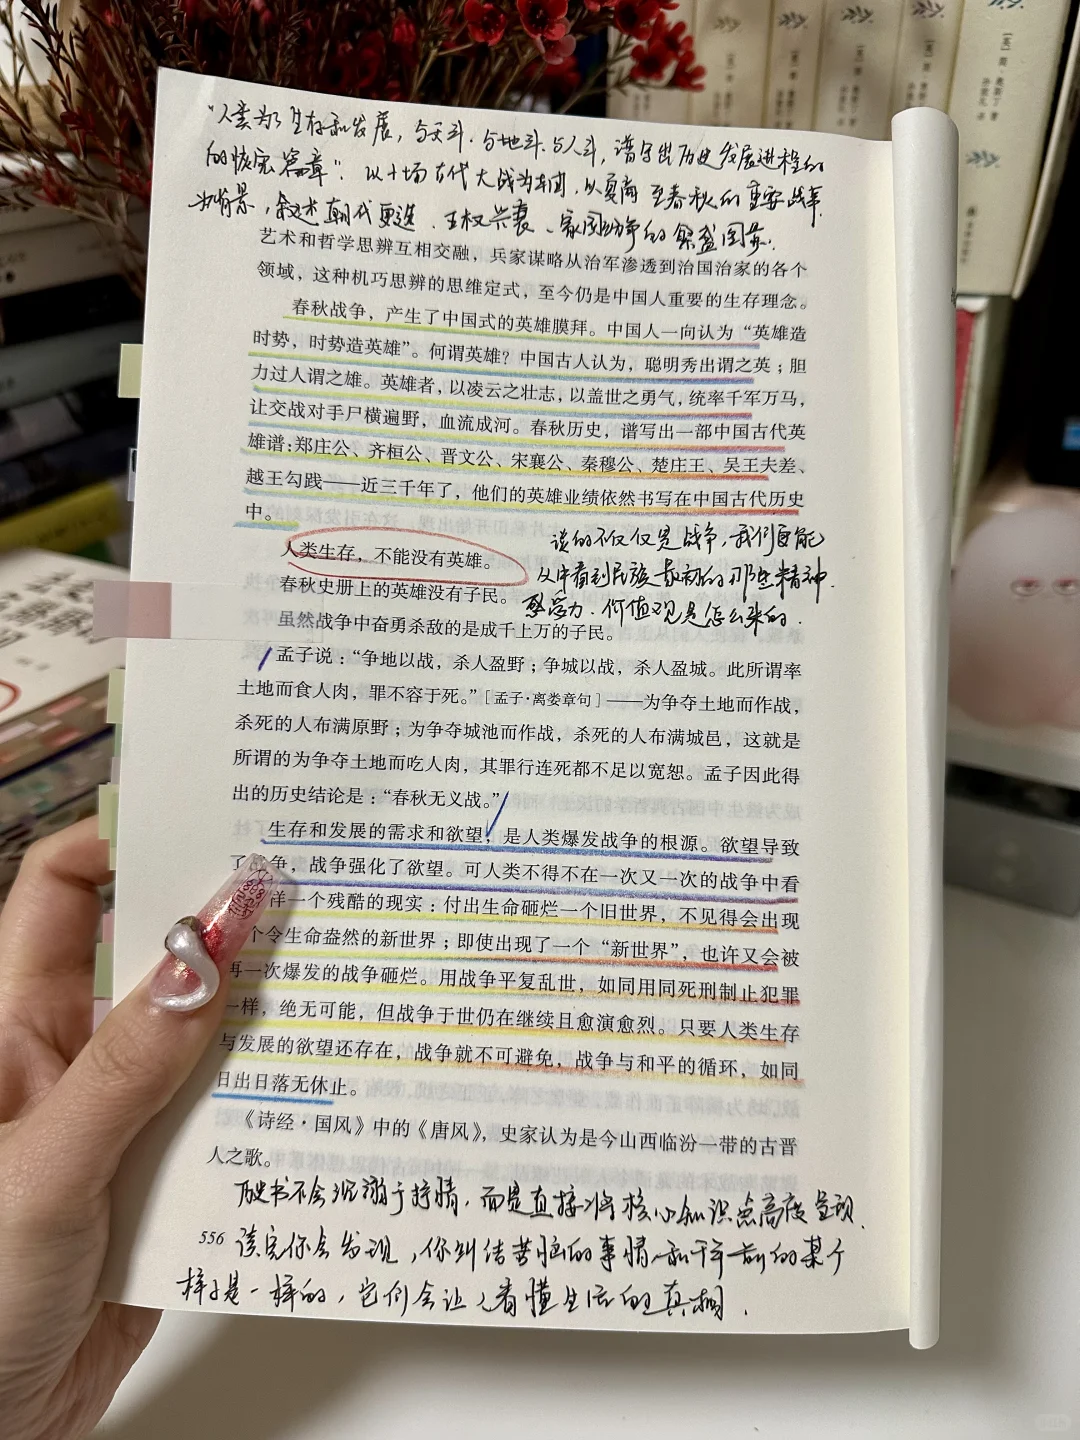 “人类为了生存和发展，与天斗.与地斗.与人斗，谱写出历史发展进程的
的恢宏篇章”. 以十场古代大战为本，以夏商至春秋的重要战事
为背景，叙述朝代更迭、王权兴衰、家国纷争的
艺术和哲学思辨互相交融，兵家谋略从治军渗透到治国治家的各个
领域，这种机巧思辨的思维定式，至今仍是中国人重要的生存理念。
春秋战争，产生了中国式的英雄膜拜。中国人一向认为“英雄造
时势，时势造英雄”。何谓英雄？中国古人认为，聪明秀出谓之英；胆
力过人谓之雄。英雄者，以凌云之壮志，以盖世之勇气，统率千军万马，
让交战对手尸横遍野，血流成河。春秋历史，谱写出一部中国古代英
雄谱：郑庄公、齐桓公、晋文公、宋襄公、秦穆公、楚庄王、吴王夫差、
越王勾践——近三千年了，他们的英雄业绩依然书写在中国古代历史
中。
人类生存，不能没有英雄。
谈的不仅仅是战争，我们更能
从中看到民族最初的那些精神.
感受力.价值观是怎么来的.
春秋史册上的英雄没有子民。
虽然战争中奋勇杀敌的是成千上万的子民。
孟子说：“争地以战，杀人盈野；争城以战，杀人盈城。此所谓率
土地而食人肉，罪不容于死。”［孟子·离娄章句］——为争夺土地而作战，
杀死的人布满原野；为争夺城池而作战，杀死的人布满城邑，这就是
所谓的为争夺土地而吃人肉，其罪行连死都不足以宽恕。孟子因此得
出的历史结论是：“春秋无义战。”
生存和发展的需求和欲望，是人类爆发战争的根源。欲望导致
了战争，战争强化了欲望。可人类不得不在一次又一次的战争中看
样一个残酷的现实：付出生命砸烂一个旧世界，不见得会出现
个令生命盎然的新世界；即使出现了一个“新世界”，也许又会被
再一次爆发的战争砸烂。用战争平复乱世，如同用同死刑制止犯罪
一样，绝无可能，但战争于世仍在继续且愈演愈烈。只要人类生存
与发展的欲望还存在，战争就不可避免，战争与和平的循环，如同
日出日落无休止。
《诗经·国风》中的《唐风》，史家认为是今山西临汾一带的古晋
人之歌。
历史书不会沉溺于抒情，而是直接将核心知识点高度呈现.
556
读完你会发现，你纠结苦恼的事情和千年前的某个
样子是一样的，它们会让人看懂生活的真相.